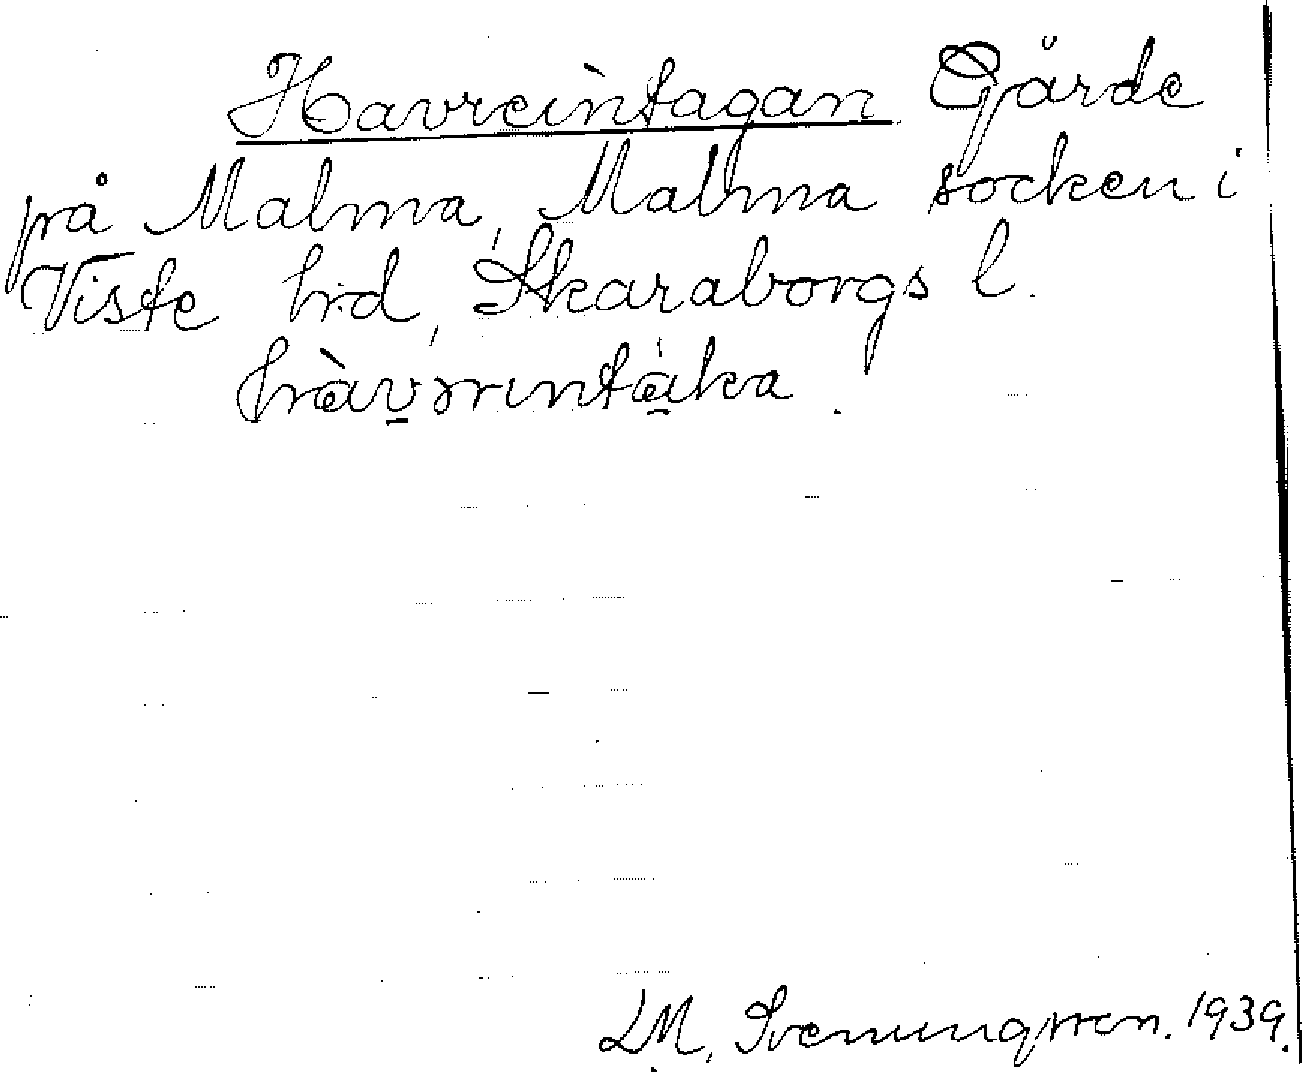 Havreintagan Gärde
på Malma, Malma socken i
Viste hrd, Skaraborgs l.
L M, Svenungsson. 1939.